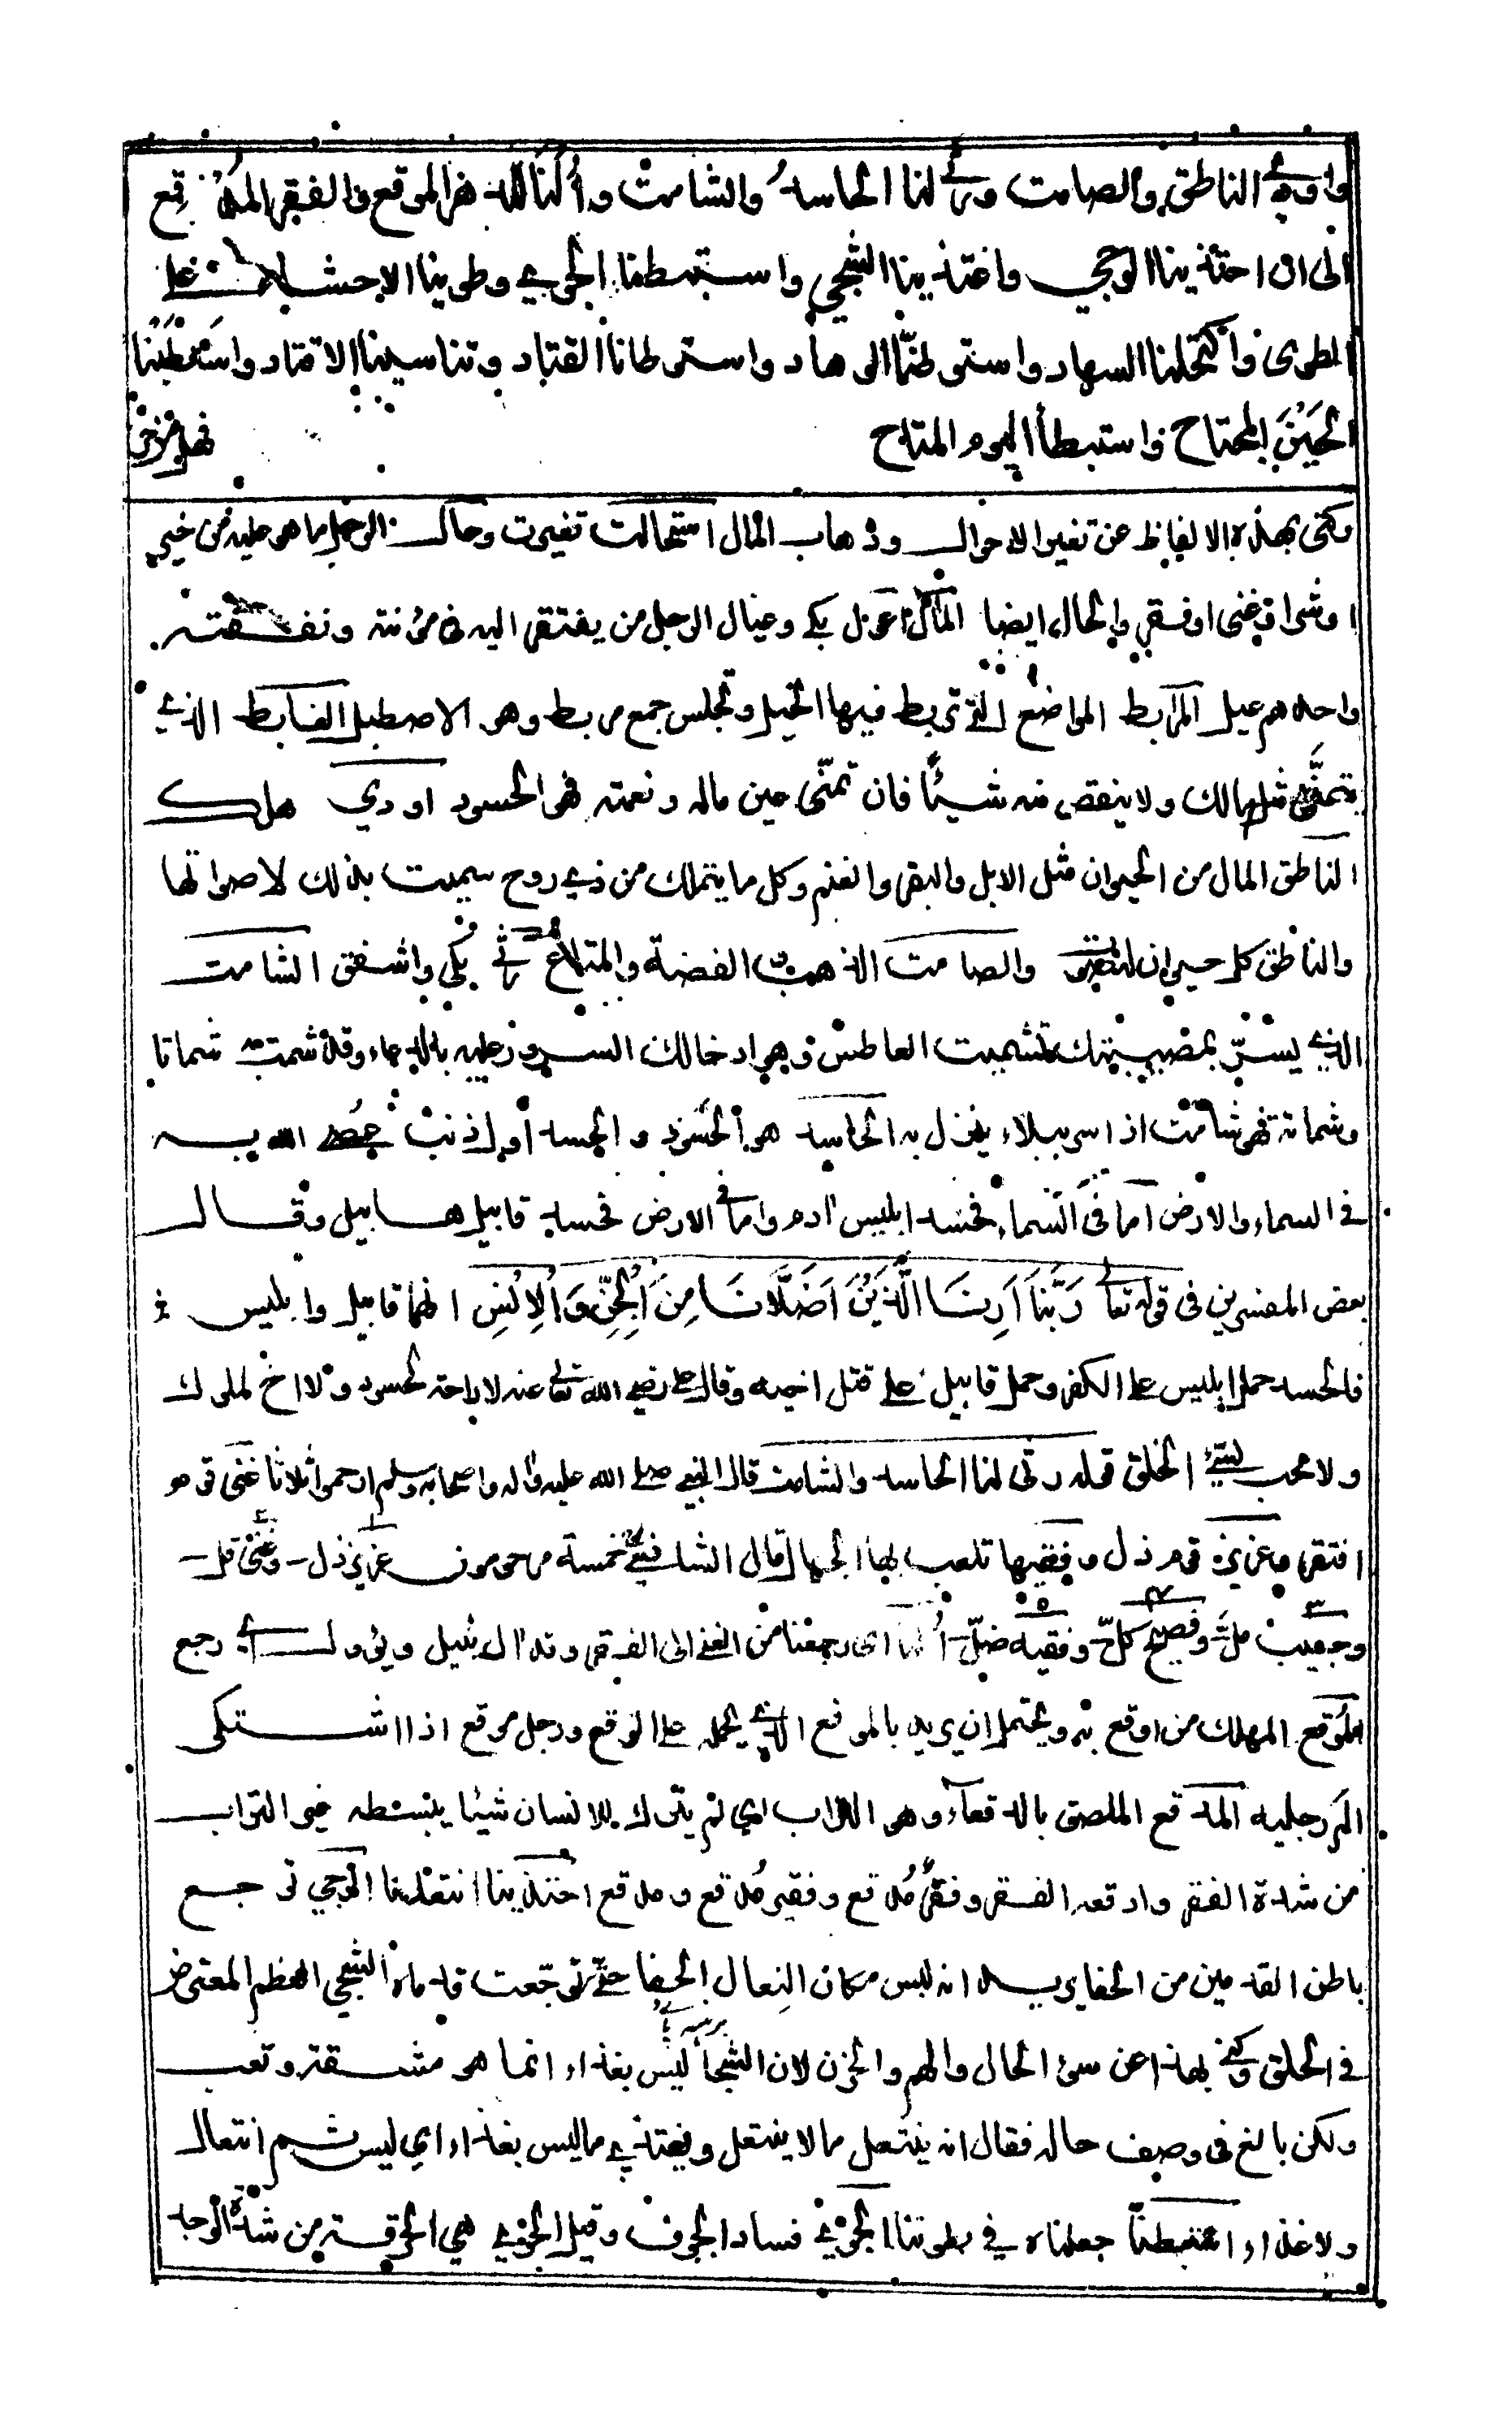 واودى الناطق والصامت ورثى لنا الحاسد والشامت وألنا للدهر الموقع والفقر المدقع
الى ان احتذينا الوجى واغتذينا الشجي واستبطنا الجوي وطوينا الاحشاء على
الطوى واكتحلنا السهاد واستوطنّا الوهاد واستوطانا القتاد وتناسينا الاقتاد واستطبنا
الحَيْنَ المجتاح واستبطأنا اليوم المتاح فهل من حر
وكنى بهذه الالفاظ عن تغير الاحوال وذهاب المال استحالت تغيرت وحال الرجل ما هو عليه من خير
او شر او غنى او فقر والحال ايضا المال اعول بكى وعيال الرجل من يفتقر اليه في مؤنته ونفقته
واحدهم عيل المرابط المواضع التي تربط فيها الخيل وتجلس جمع مربط وهو الاصطبل الغابط الذي
يتمنّى مثل مالك ولا ينقص منه شيئًا فان تمنّى عين ماله ونعمته فهو الحسود اودي هلك
الناطق المال من الحيوان مثل الابل والبقر والغنم وكل ما يتملك من ذي روح سميت بذلك لاصواتها
والناطق كل حيوان والصامت الذهب والفضة والمتاع رثى بكى واشفق الشامت
الذي يسرّ بمصيبتك تشميت العاطس وهو ادخالك السرور عليه بالدعاء وقد شمت شماتا
وشماتة فهو شامت اذا سر ببلاء ينزل به الحاسد هو الحسود والحسد أول ذنب عصى الله به
في السماء والارض اما في السماء فحسد ابليس ادم واما في الارض فحسد قابيل هابيل وقال
بعض المفسرين في قوله تعالى رَبَّنَا أَرِنَا الَّذَيْنِ اَضَلَّانَا مِنَ الْجِنِّ وَالْاِنْسِ انهما قابيل وابليس
فالحسد حمل ابليس على الكفر وحمل قابيل على قتل اخيه وقال علي رضي الله تعالى عنه لا راحة لحسود ولا اخ لملوك
ولا محب لسيّئ الخلق قوله رثى لنا الحاسد والشامت قال النبي صلى الله عليه واله واصحابه وسلم ارحموا ثلاثا غنى قوم
افتقر وعزيز قوم ذل وفقيها تلعب بها الجهال قال الشافعي خمسة مرحومون عزيز ذل وغنى قل
وحبيب ملّ وفصيح كلّ وفقيه ضلّ ألنا اى رجعنا من الغنى الى الفقر وقد ال يئيل ويؤول اي رجع
الموقع المهلك من اوقع به ويحتمل ان يريد بالموقع الذي يحمله على الوقع ورجل موقع اذا اشتكى
الم رجليه المدقع الملصق بالدقعاء وهو التراب اي لم يترك للانسان شيئا ينبسطه غير التراب
من شدة الفقر وادقعه الفقر وفقرٌ مُدقع وفقير مُدقع ومدقع احتذينا انتعلنا الوجي توجع
باطن القدمين من الحفا يريد انه لبس مكان النعال الحفا حتّى توجّعت قدماه الشجي العظم المعترض
في الحلق وكنى بهذا عن سوئ الحال والهم والحزن لان الشجا ليس بغذاء انما هو مشقة وتعب
ولكن بالغ في وصف حاله فقال انه ينتعل ما لا ينتعل ويغتذي ما ليس بغذاء اي ليس ثم انتعال
ولا غذاء استبطنّا جعلناه في بطوننا الجوي فساد الجوف وقيل الجوي هي الحرقة من شدّة الوجد